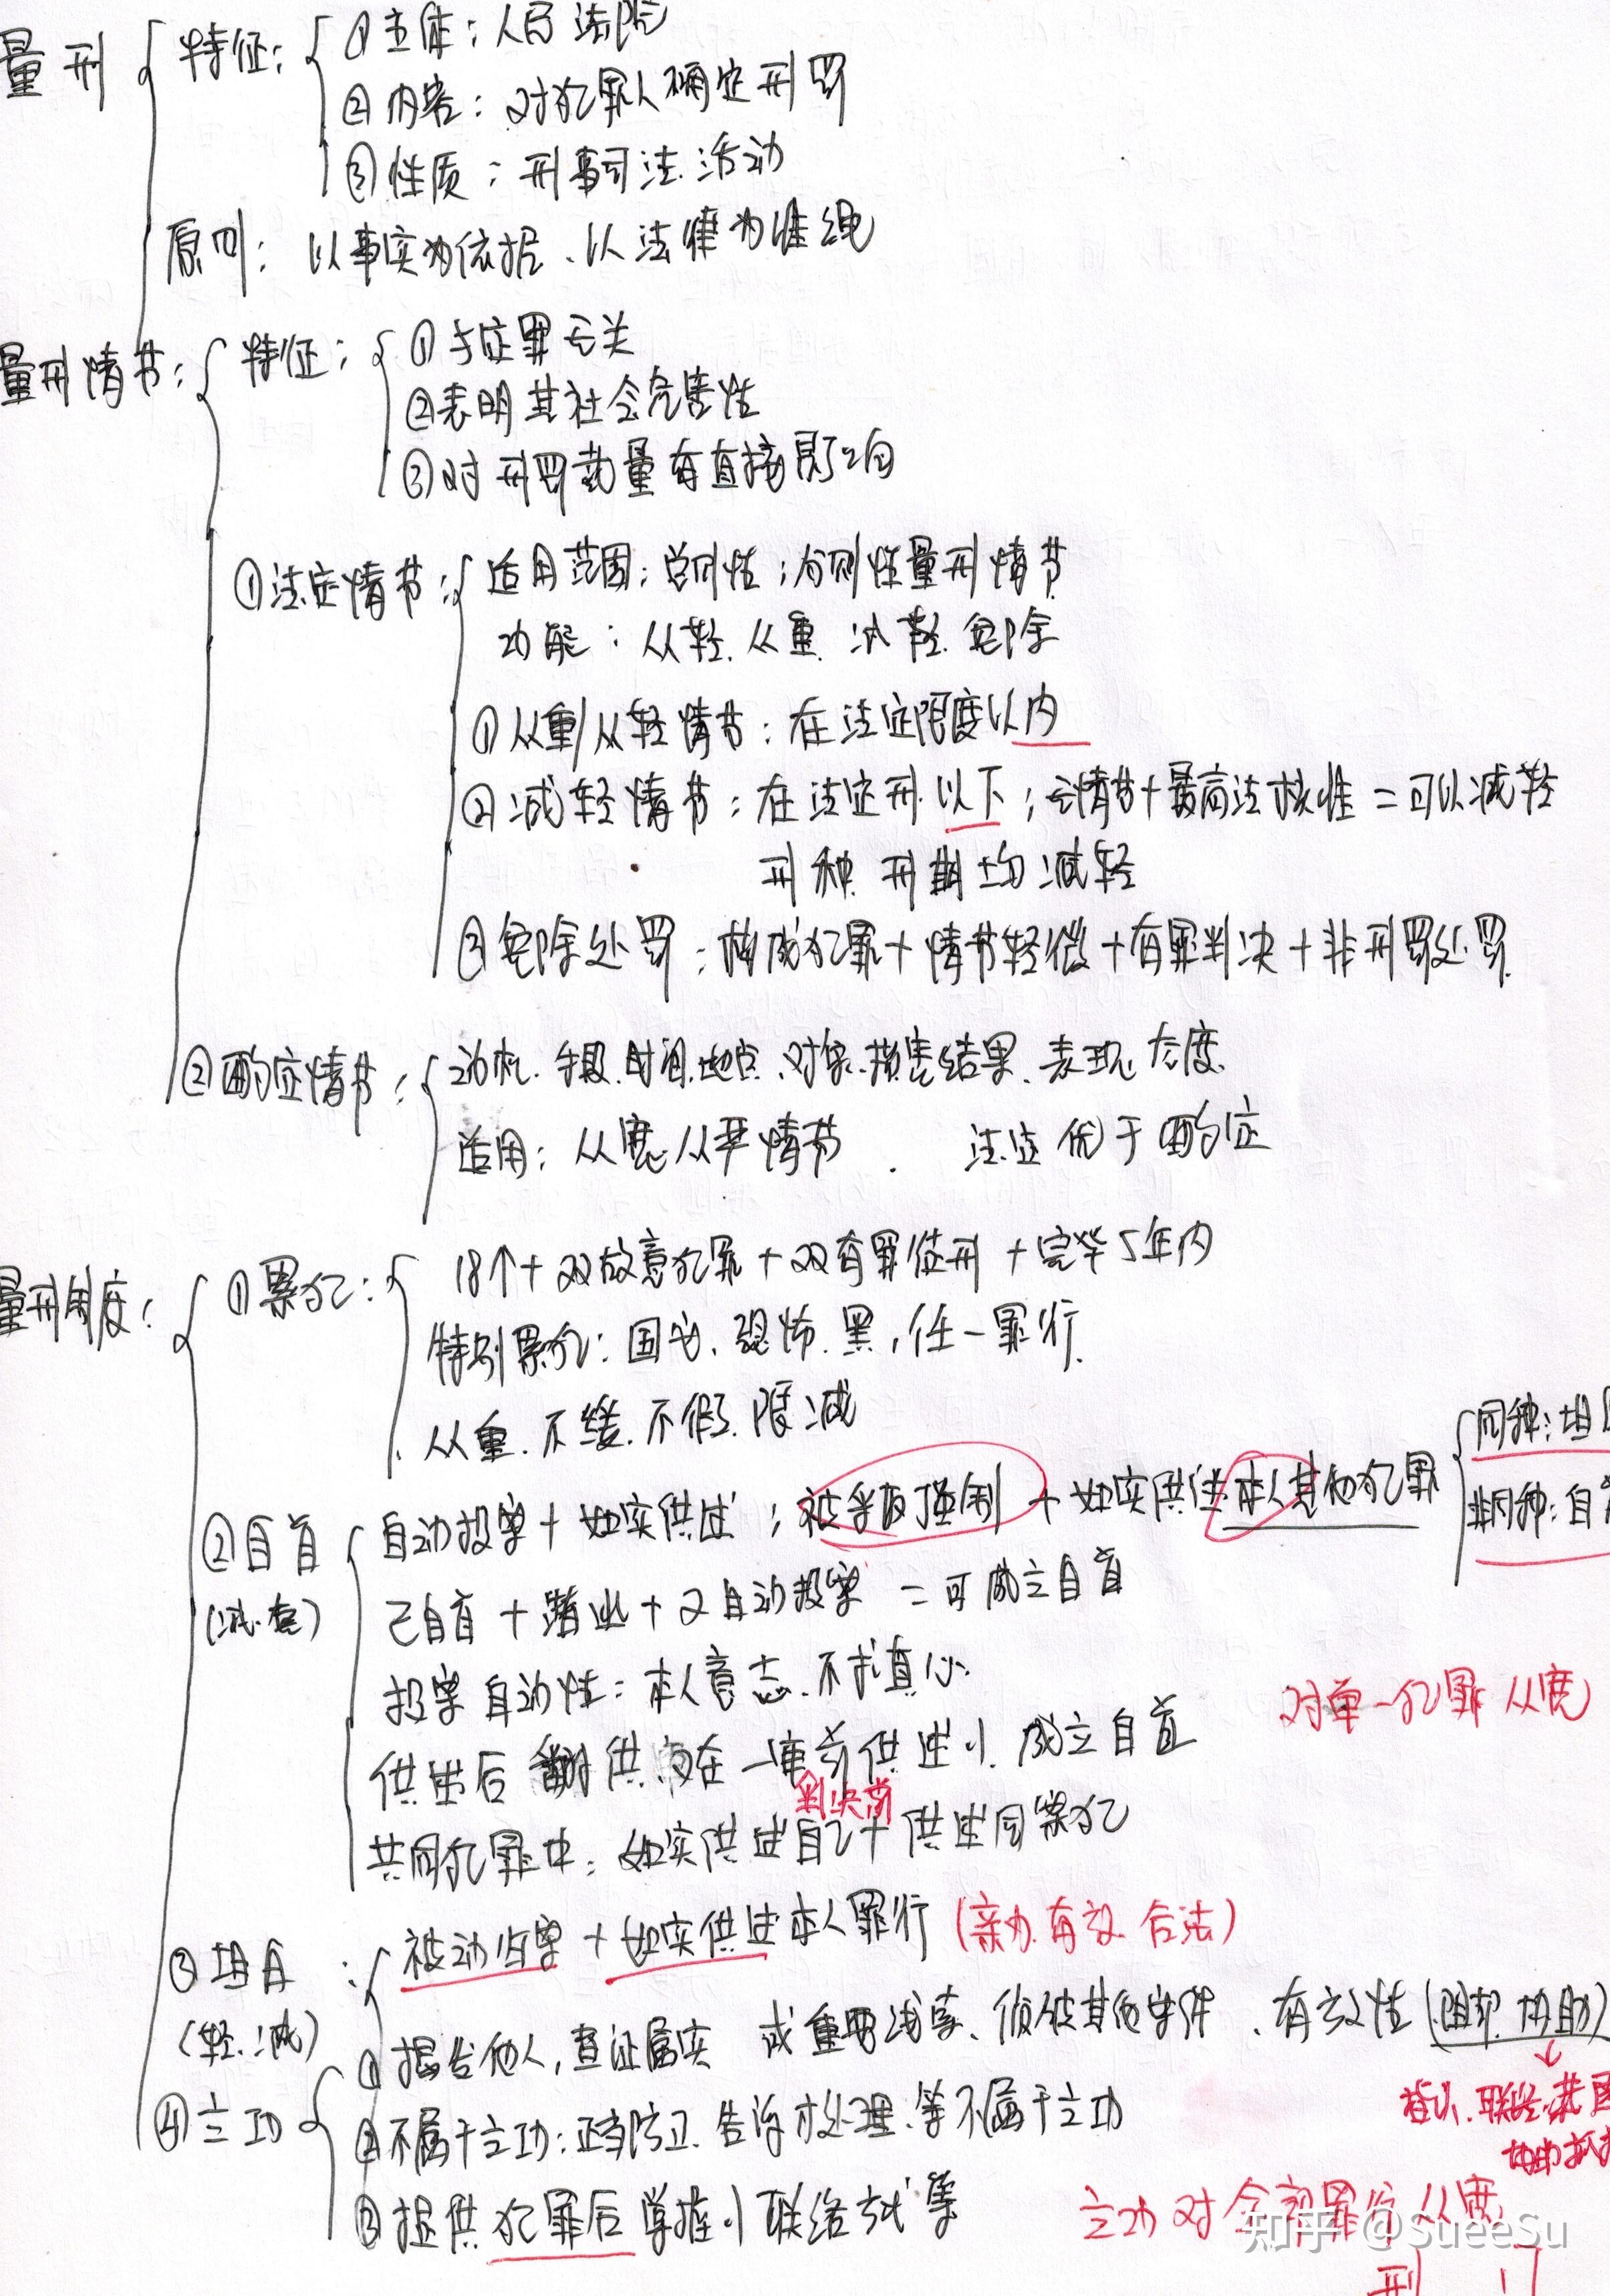 量刑 特征: ①主体:人民法院
②内容:对犯罪人确定刑罚
③性质:刑事司法活动
原则: 以事实为依据、以法律为准绳
量刑情节: 特征: ①与定罪无关
②表明其社会危害性
③对刑罚裁量有直接影响
①法定情节: 适用范围:总则性;分则性量刑情节
功能:从轻.从重.减轻.免除
①从重从轻情节:在法定限度以内
②减轻情节:在法定刑以下;无情节+最高法核准=可以减轻
刑种 刑期均减轻
③免除处罚:构成犯罪+情节轻微+有罪判决+非刑罚处罚
②酌定情节: 动机.手段.时间.地点.对象.损害结果.表现.态度.
适用:从宽从严情节. 法定优于酌定
量刑制度: ①累犯: 18个+双故意犯罪+双有罪徒刑+完毕5年内
特别累犯:国安.恐怖.黑,任一罪行.
从重.不缓.不假.限减
②自首 自动投案+如实供述;被采取强制+如实供述本人其他犯罪 同种:坦
非同种:自
(减.免) 已自首+潜逃+又自动投案=可成立自首
投案自动性:本人意志.不求真心.
对单一犯罪从宽
供出后翻供 在一审前供述 成立自首
判决前
共同犯罪中:如实供述自己+供述同案犯
③坦白: 被动归案+如实供述本人罪行(亲为.有效.合法)
(轻.减)
①揭发他人,查证属实 或重要线索、侦破其他案件、有效性(阻却.协助)
④立功 ②不属于立功:正当防卫.告诉才处理.等不属于立功
指认.联络.
协助抓
③提供犯罪后掌握 联络方式等
立功对全部罪行从宽
知乎 @SueeSu
刑